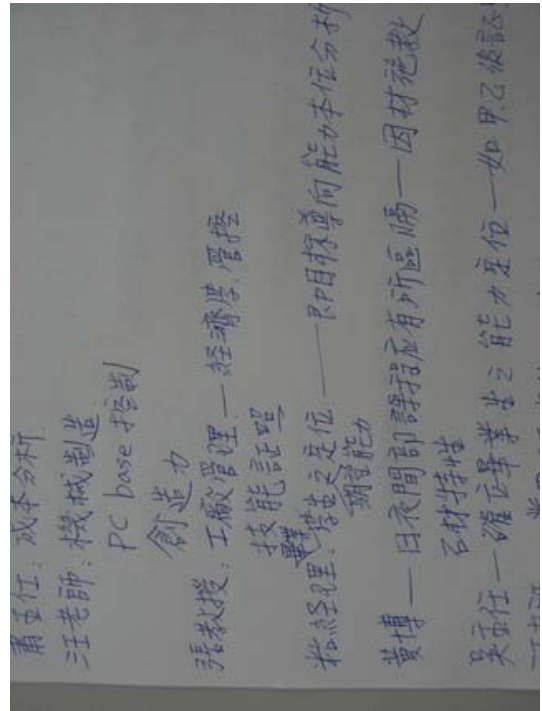 蕭主任：成本分析
汪老師：機械製造
PC base 控制
創造力
張教授：工廠管理—經濟學、管控
技能証照
粘經理：學生之定位——即目標導向能力本位分析
黃博—日夜間部課程應有所區隔—因材施教
石材特性
吳主任—確立畢業生之能力定位—如甲乙級証